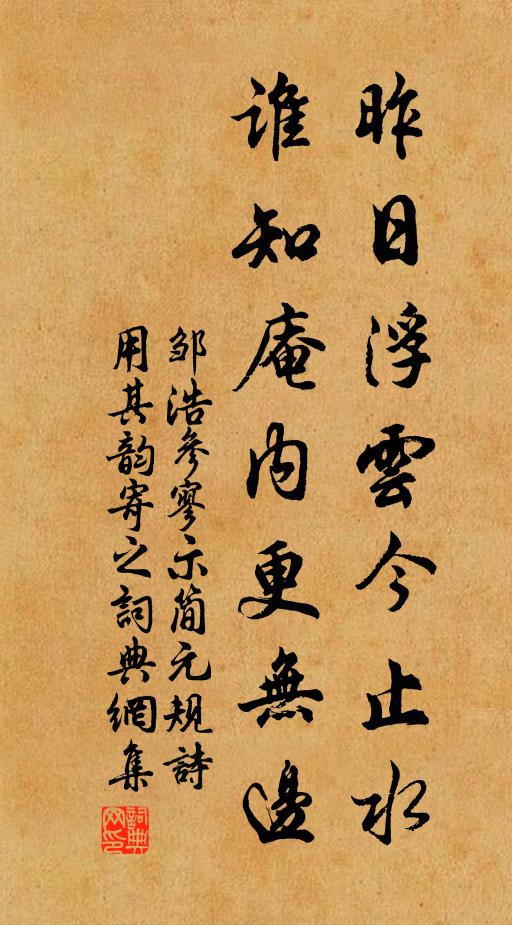 昨日浮雲今止水
誰知庵內更無邊
邹浩參寥示简元規詩
用其韵寄之詞典網集
詞典
网印